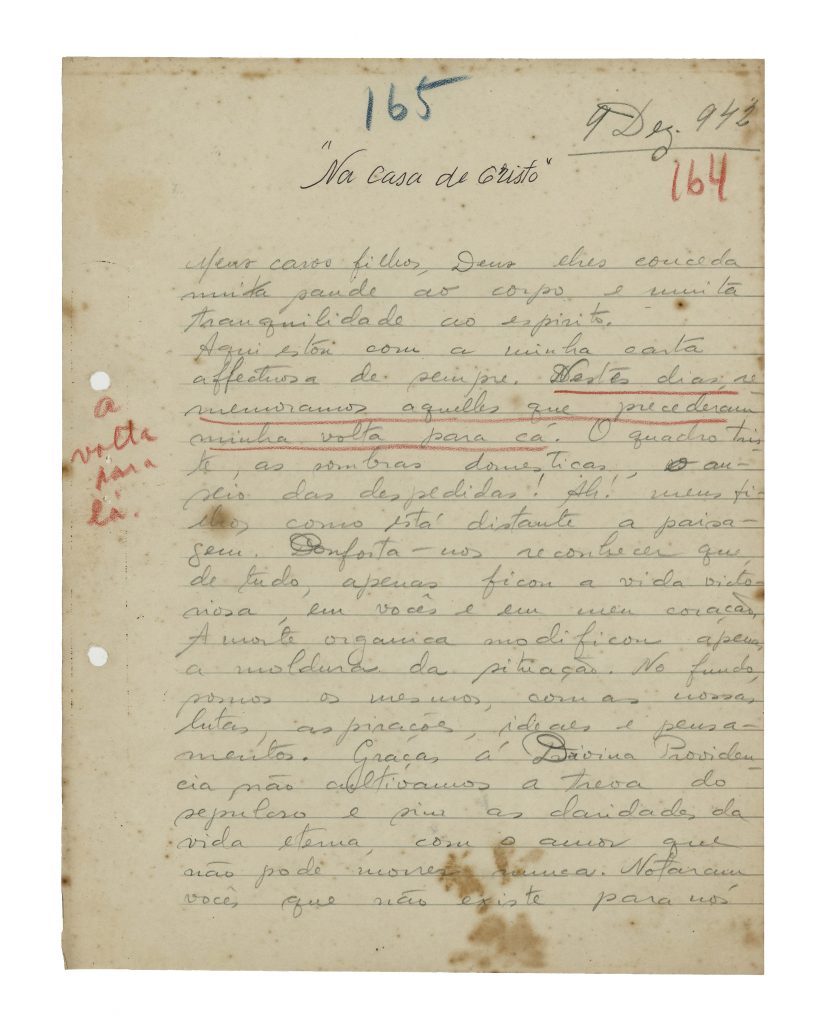 165
9 Dez. 942
"Na Casa de Cristo"
164
Meus caros filhos, Deus lhes conceda
muita saude ao corpo e muita
tranquilidade ao espirito.
Aqui estou com a minha carta
affectuosa de sempre. Nestes dias, re-
memoramos aquelles que precederam
minha volta para cá. O quadro tris-
te, as sombras domesticas, o an-
seio das despedidas! Ah! meus fi-
lhos como está distante a paisa-
gem. Conforta-nos reconhecer que,
de tudo, apenas ficou a vida victo-
riosa, em vocês e em meu coração.
A morte organica modificou apenas
a moldura da situação. No fundo,
somos os mesmos, com as nossas
lutas, aspirações, ideaes e pensa-
mentos. Graças á Divina Providen-
cia não cultivamos a treva do
sepulcro e sim as claridades da
vida eterna, com o amor que
não pode morrer nunca. Notaram
vocês que não existe para nós
a
volta
para
lá.